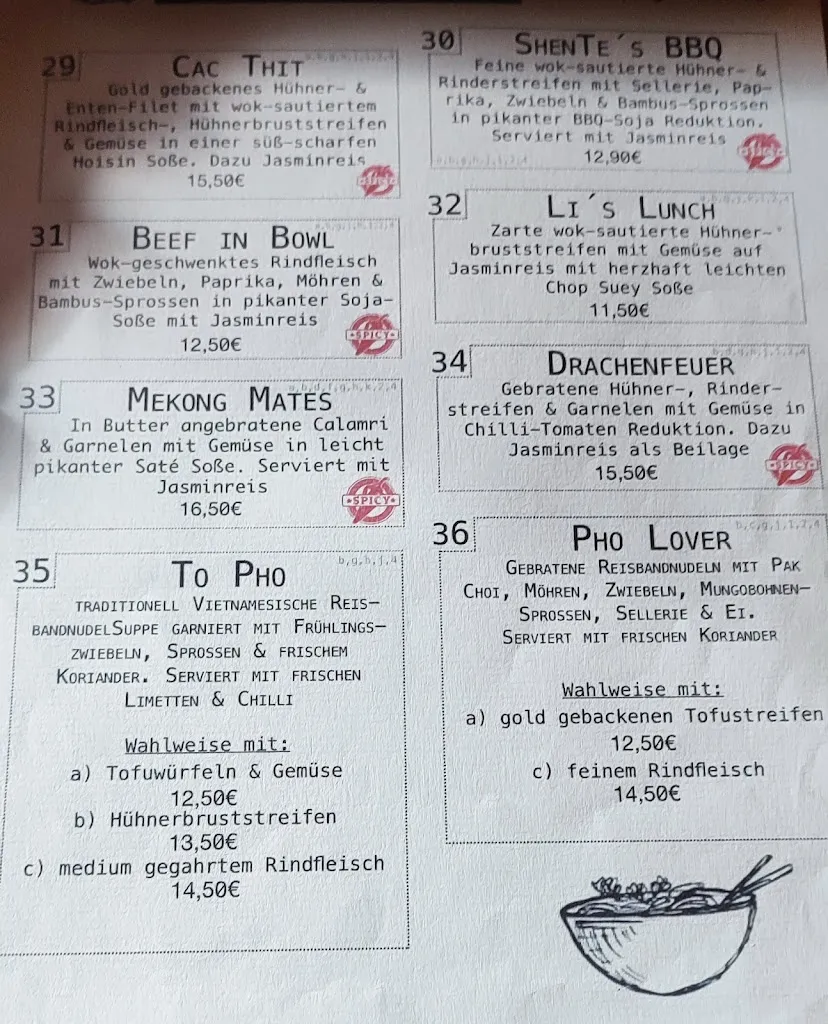 29
CAC THIT
Gold gebackenes Hühner- &
Enten-Filet mit wok-sautiertem
Rindfleisch-, Hühnerbruststreifen
& Gemüse in einer süß-scharfen
Hoisin Soße. Dazu Jasminreis
15,50€
SPICY
30
SHENTE´S BBQ
Feine wok-sautierte Hühner- &
Rinderstreifen mit Sellerie, Pap-
rika, Zwiebeln & Bambus-Sprossen
in pikanter BBQ-Soja Reduktion.
Serviert mit Jasminreis
12,90€
SPICY
31
BEEF IN BOWL
Wok-geschwenktes Rindfleisch
mit Zwiebeln, Paprika, Möhren &
Bambus-Sprossen in pikanter Soja-
Soße mit Jasminreis
12,50€
SPICY
32
LI´S LUNCH
Zarte wok-sautierte Hühner-
bruststreifen mit Gemüse auf
Jasminreis mit herzhaft leichten
Chop Suey Soße
11,50€
33
MEKONG MATES
In Butter angebratene Calamri
& Garnelen mit Gemüse in leicht
pikanter Saté Soße. Serviert mit
Jasminreis
16,50€
SPICY
34
DRACHENFEUER
Gebratene Hühner-, Rinder-
streifen & Garnelen mit Gemüse in
Chilli-Tomaten Reduktion. Dazu
Jasminreis als Beilage
15,50€
SPICY
35
b,g,h,j,4
TO PHO
TRADITIONELL VIETNAMESISCHE REIS-
BANDNUDELSUPPE GARNIERT MIT FRÜHLINGS-
ZWIEBELN, SPROSSEN & FRISCHEM
KORIANDER. SERVIERT MIT FRISCHEN
LIMETTEN & CHILLI
Wahlweise mit:
a) Tofuwürfeln & Gemüse
12,50€
b) Hühnerbruststreifen
13,50€
c) medium gegahrtem Rindfleisch
14,50€
36
PHO LOVER
GEBRATENE REISBANDNUDELN MIT PAK
CHOI, MÖHREN, ZWIEBELN, MUNGOBOHNEN-
SPROSSEN, SELLERIE & EI.
SERVIERT MIT FRISCHEN KORIANDER
Wahlweise mit:
a) gold gebackenen Tofustreifen
12,50€
c) feinem Rindfleisch
14,50€